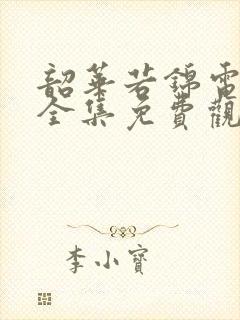 韶華若錦電
全集免費觀
李小寶